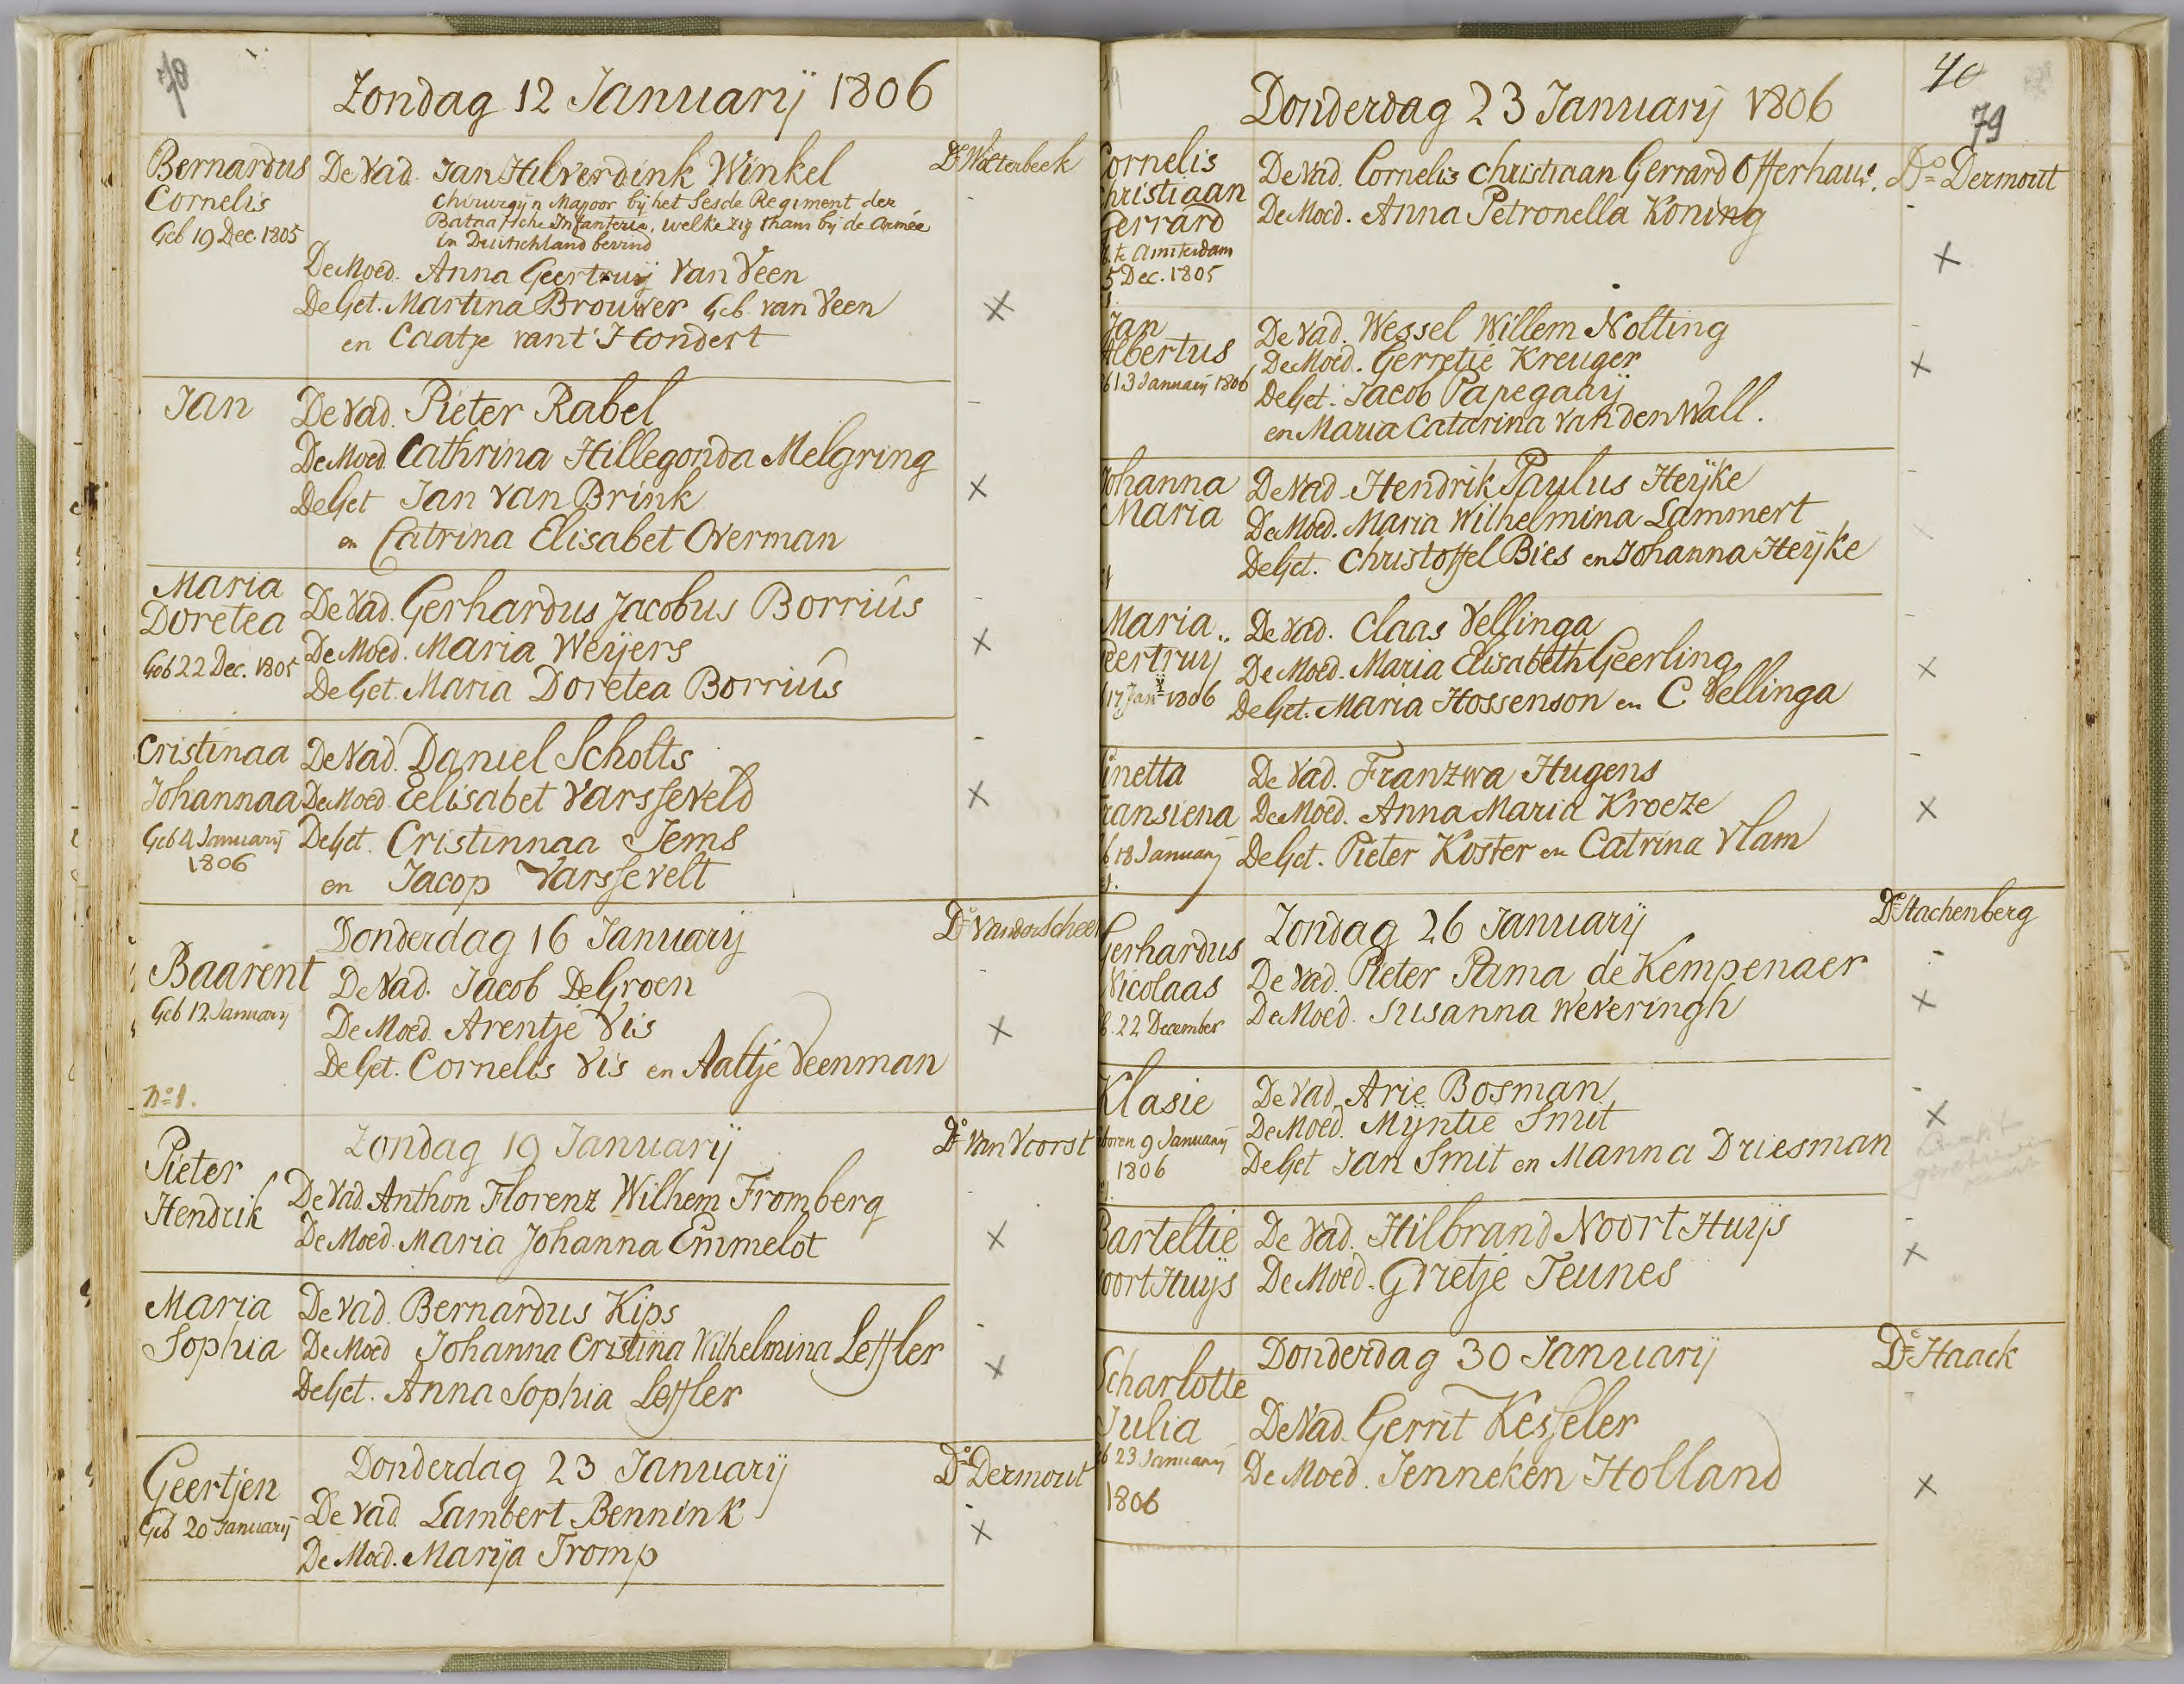 78
Zondag 12 Januarij 1806
Bernardus
Cornelis
Geb 19 Dec. 1805
De Vad. Jan Hilverdink Winkel
Chirurgijn Majoor bij het Sesde Regiment der
Bataafsche Infanterie, welke zig thans bij de Armée
in Duitschland bevind
De Moed. Anna Geertruij Van Veen
De Get. Martina Brouwer Geb. van Veen
en Caatje van t Hondert
Ds Wolterbeek
Jan
De Vad. Pieter Rabel
De Moed. Cathrina Hillegonda Melgring
De Get Jan Van Brink
en Catrina Elisabet Overman
Maria
Doretea
Geb 22 Dec. 1805
De Vad. Gerhardus Jacobus Borrius
De Moed. Maria Weijers
De Get. Maria Doretea Borrius
Cristinaa
Johannaa
Geb 4 Januarij
1806
De Vad. Daniel Scholts
De Moed Eelisabet Varsseveld
De Get. Cristinnaa Jems
en Jacop Varssevelt
Donderdag 16 Januarij
Baarent
Geb 12 Januarij
No 1.
De Vad. Jacob De Groen
De Moed. Arentje Vis
De Get. Cornelis Vis en Aaltje Veenman
Do Van der Scheer
Zondag 19 Januarij
Pieter
Hendrik
De Vad. Anthon Florenz Wilhem Fromberg
De Moed. Maria Johanna Emmelot
Do Van Voorst
Maria
Sophia
De Vad. Bernardus Kips
De Moed Johanna Cristina Wilhelmina Leffler
De Get. Anna Sophia Leffler
Donderdag 23 Januarij
Geertjen
Geb 20 Januarij
De Vad. Lambert Bennink
De Moed. Marija Tromp
Do Dermout
40
79
Donderdag 23 Januarij 1806
Cornelis
Christiaan
Gerrard
te Amsterdam
5 Dec. 1805
De Vad. Cornelis Christiaan Gerrard Offerhaus.
De Moed. Anna Petronella Koning
Do Dermout
Jan
Albertus
13 Januarij 1806
De Vad. Wessel Willem Nolting
De Moed. Gerretje Kreuger
De Get. Jacob Papegaaij
en Maria Catarina Van den Wall.
Johanna
Maria
De Vad. Hendrik Paulus Heijke
De Moed. Maria Wilhelmina Lammert
De Get. Christoffel Bies en Johanna Heijke
Maria
Geertruij
17 Janij 1806
De Vad. Claas Vellinga
De Moed. Maria Elisabeth Geerling
De Get. Maria Hossenson en C Vellinga
inetta
ransiena
18 Januarij
De Vad. Franzwa Hugens
De Moed. Anna Maria Kroeze
De Get. Pieter Koster en Catrina Vlam
Zondag 26 Januarij
Gerhardus
Nicolaas
22 December
De Vad. Pieter Pama de Kempenaer
De Moed. Susanna Weveringh
Do Stachenberg
Klasie
boren 9 Januarij
1806
De Vad. Arie Bosman
De Moed. Mijntie Smit
De Get Jan Smit en Manna Driesman
Barteltie
oort Huijs
De Vad. Hilbrand Noort Huijs
De Moed. Grietje Teunes
Donderdag 30 Januarij
Scharlotte
Julia
23 Januarij
1806
De Vad. Gerrit Kesseler
De Moed. Jenneken Holland
Do Haack